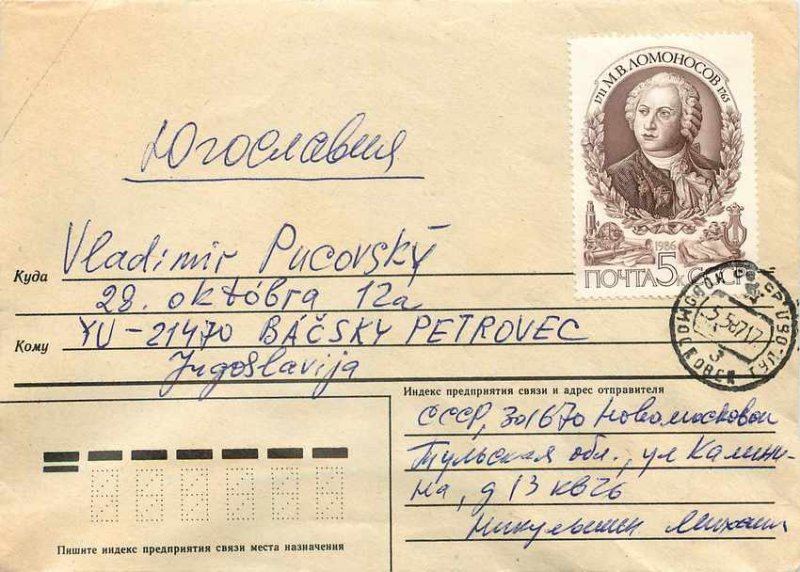 1711 М.В. ЛОМОНОСОВ 1765
1986
ПОЧТА 5к СССР
Югославия
Vladimir Pucovský
Куда
28. októbra 12a
Кому
YU-21470 BÁČSKY PETROVEC
Jugoslavija
Индекс предприятия связи и адрес отправителя
СССР, 301670 Новомосковск
Тульская обл., ул Калини-
на, д 13 кв 26
Никульшин Михаил
Пишите индекс предприятия связи места назначения